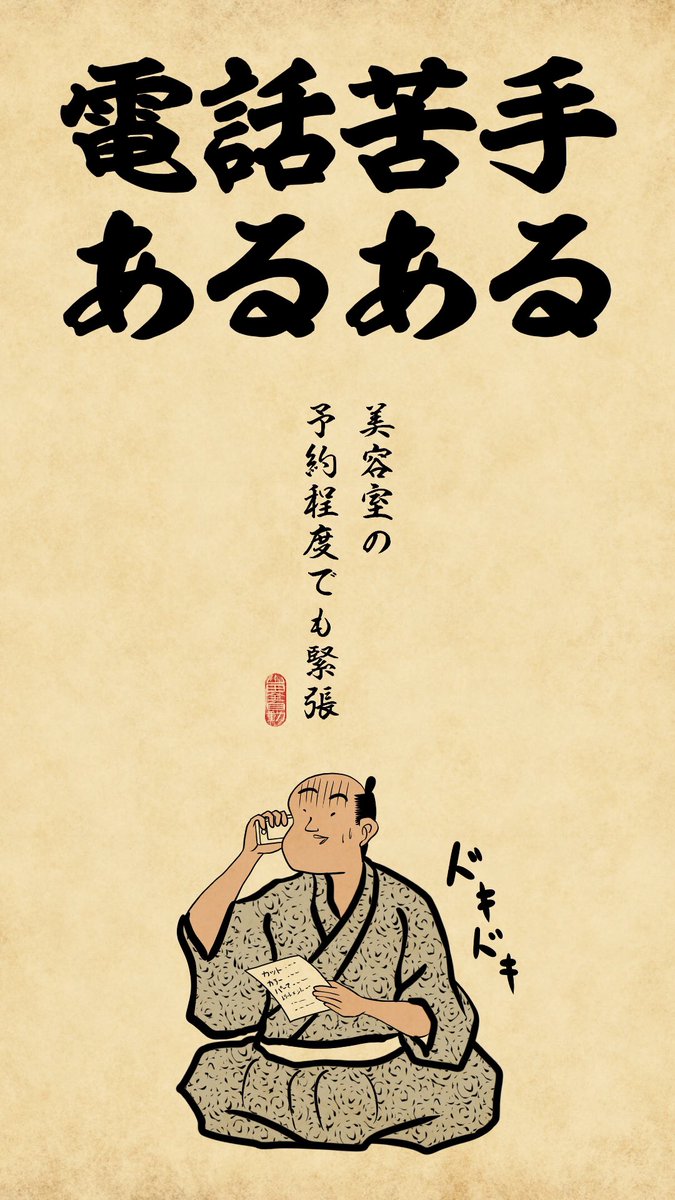 電話苦手
あるある
美容室の
予約程度でも緊張
ドキドキ
カット
カラー
パーマ